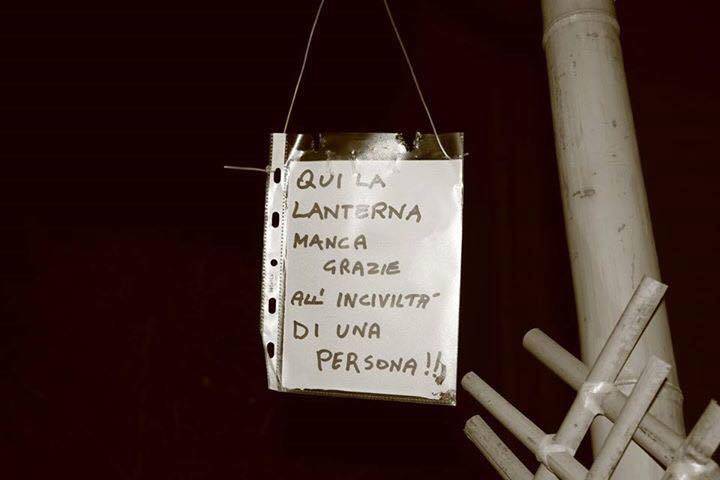 QUI LA
LANTERNA
MANCA
GRAZIE
ALL' INCIVILTA'
DI UNA
PERSONA!!